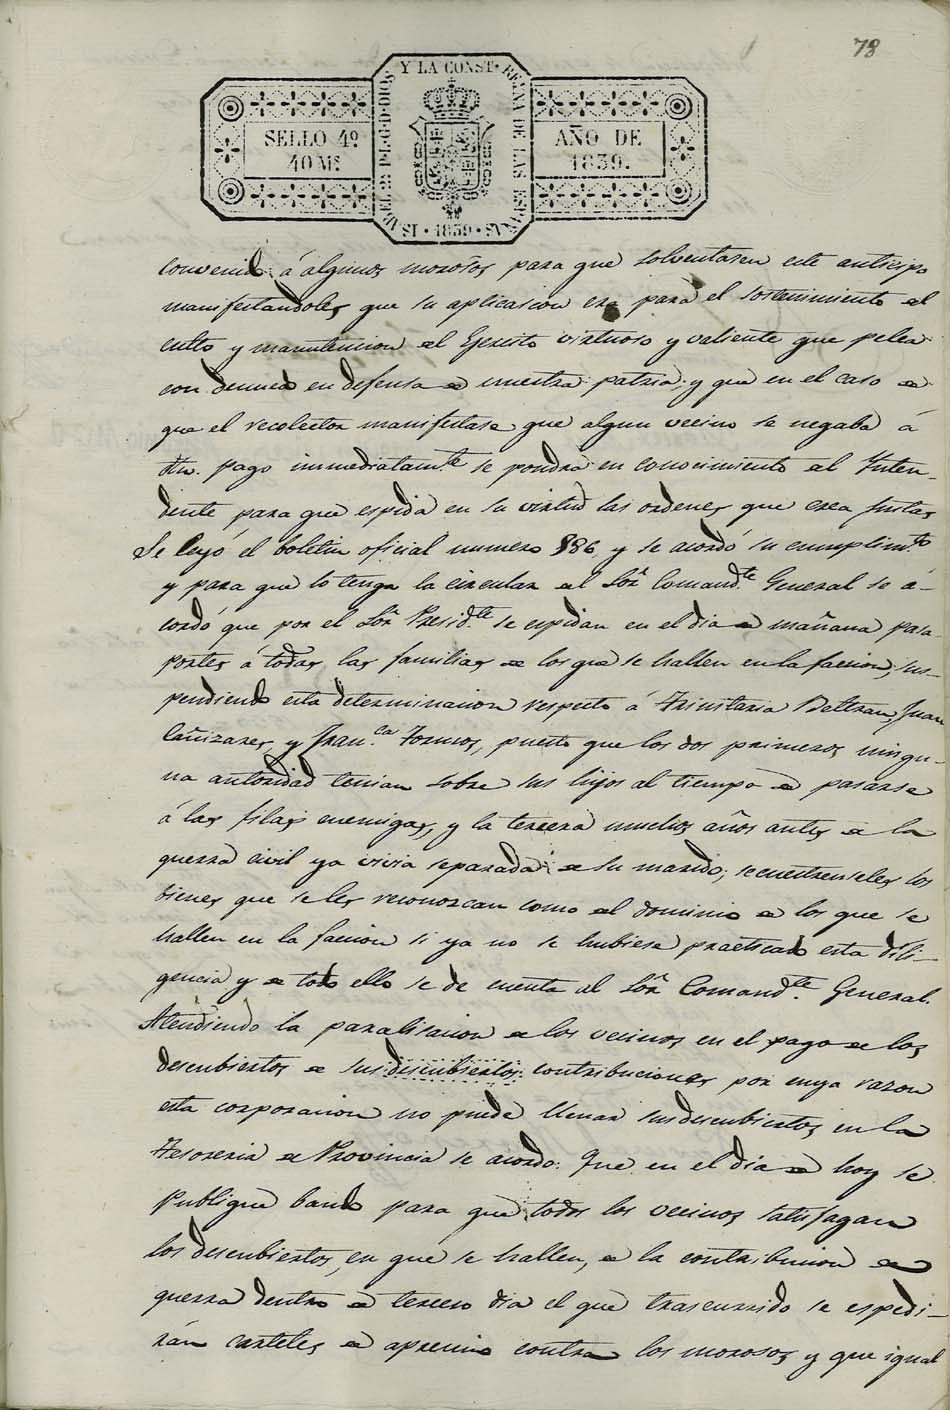 78
SELLO 4º
40 Ms.
ISABEL 2ª P.L.G.D.DIOS Y LA CONST. REINA DE LAS ESPAÑAS
· 1839 ·
AÑO DE
1839.
convenido á algunos morosos para que solventasen este anticipo
manifestandoles que su aplicacion era para el sostenimiento del
culto y manutencion del Egercito virtuoso y valiente que pelea
con denuedo en defensa de nuestra patria; y que en el caso de
que el recolector manifestase que algun vecino se negaba á
su pago immediatamte. se pondrá en conocimiento del Inten-
dente para que espida en su virtud las ordenes que crea justas
Se leyó el boletin oficial numero 186, y se acordó su cumplimto.
y para que lo tenga la circular del Sor. Comandte. General se a-
cordó que por el Sor. Presidte. se espidan en el dia de mañana pasa
portes á todas las familias de los que se hallen en la facion, sus-
pendiendo esta determinacion respecto á Trinitaria Beltran, Juan
Cañizares, y Franca. Formos, puesto que los dos primeros ningu-
na autoridad tenian sobre sus hijos al tiempo de pasarse
á las filas enemigas, y la tercera muchos años antes de la
guerra civil ya vivia separada de su marido; secuestrenseles los
bienes que se les reconozcan como del dominio de los que se
hallen en la facion si ya no se hubiese practicado esta dili-
gencia y de todo ello se de cuenta al Sor. Comandte. General.
Atendiendo la paralisacion de los vecinos en el pago de los
descubiertos de sus descubiertos contribuciones por cuya razon
esta corporacion no puede llenar sus descubiertos en la
Tesoreria de Provincia se acordo: Que en el dia de hoy se
publique bando para que todos los vecinos satisfagan
los descubiertos, en que se hallen, de la contribucion de
guerra dentro de tercero dia el que trascurrido se espedi-
rán carteles de apremio contra los morosos y que igual